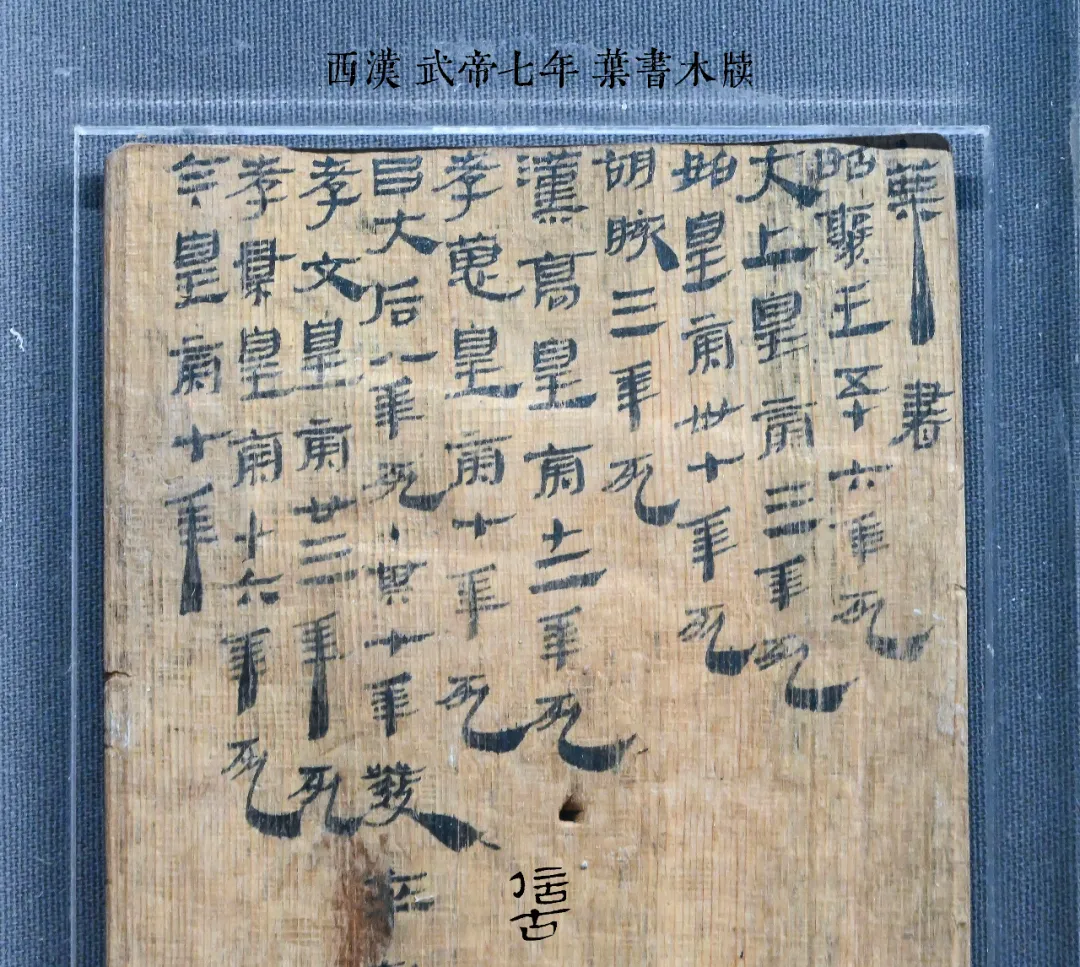 西漢 武帝七年 葉書木牍
葉書
昭襄王五十六年死
大上皇帝三年死
始皇帝卅七年死
胡胲三年死
漢高皇帝十二年死
孝惠皇帝七年死
呂大后八年死·其七年發
孝文皇帝廿三年死
孝景皇帝十六年死
今皇帝七年
信古